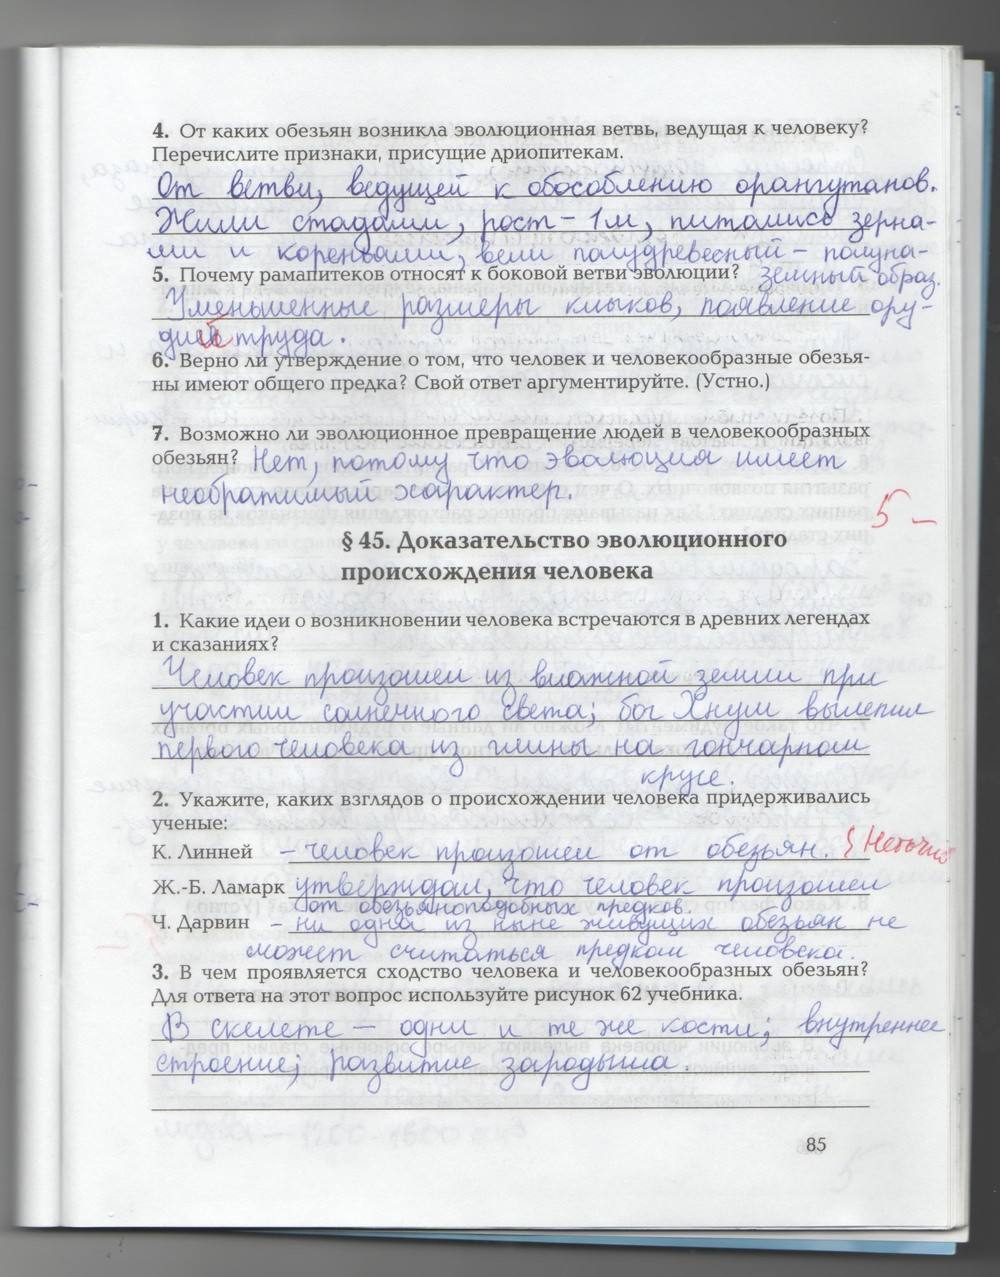 4. От каких обезьян возникла эволюционная ветвь, ведущая к человеку?
Перечислите признаки, присущие дриопитекам.
От ветви, ведущей к обособлению орангутанов.
Жили стадами, рост – 1м, питались зерна-
ми и кореньями, вели полудревесный – полуна-
5. Почему рамапитеков относят к боковой ветви эволюции? земный образ.
Уменьшенные размеры клыков, появление ору-
дий труда.
6. Верно ли утверждение о том, что человек и человекообразные обезья-
ны имеют общего предка? Свой ответ аргументируйте. (Устно.)
7. Возможно ли эволюционное превращение людей в человекообразных
обезьян? Нет, потому что эволюция имеет
необратимый характер.
5 –
§ 45. Доказательство эволюционного
происхождения человека
1. Какие идеи о возникновении человека встречаются в древних легендах
и сказаниях?
Человек произошел из влажной земли при
участии солнечного света; бог Хнум вылепил
первого человека из глины на гончарном
круге.
2. Укажите, каких взглядов о происхождении человека придерживались
ученые:
К. Линней – человек произошел от обезьян. { Неточно
Ж.-Б. Ламарк утверждал, что человек произошел
от обезьяноподобных предков.
Ч. Дарвин – ни одна из ныне живущих обезьян не
может считаться предком человека.
3. В чем проявляется сходство человека и человекообразных обезьян?
Для ответа на этот вопрос используйте рисунок 62 учебника.
В скелете – одни и те же кости; внутреннее
строение; развитие зародыша.
85